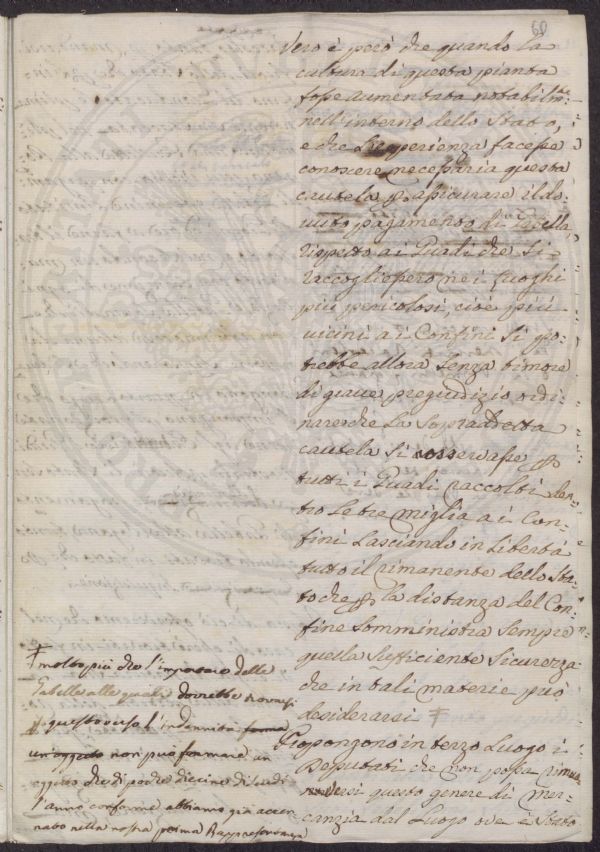 60
Vero è però che quando la
cultura di questa pianta
fosse aumentata notabilmte
nell'interno dello Stato,
e che l'esperienza facesse
conoscere necessaria questa
cautela p. assicurare il do-
vuto pagamento di Gabella,
rispetto ai Guadi che si
raccogliessero nei Luoghi
più pericolosi, cioè più
vicini ai Confini si po-
trebbe allora senza timore
di grave pregiudizio ordi-
nare che la sopraddetta
cautela si osservasse p.
tutti i Guadi raccolti den-
tro le tre miglia ai Con-
fini lasciando in libertà
tutto il rimanente dello Sta-
to che p. la distanza del Con-
fine somministra sempre
quella sufficiente sicurezza
che in tali materie può
desiderarsi
Propongono in terzo luogo i
Deputati che non possa
questo genere di Mer-
canzia dal Luogo ove è stato
molto più che l'importare delle
Gabelle alle quali dovrebbe
p. questo verso l'indennità forma
un oggetto non può formare un
oggetto che di poche diecine di scudi
l'anno conforme abbiamo già accen-
nato nella nostra prima Rappresentanza